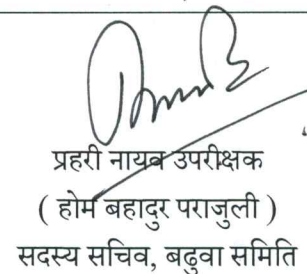 प्रहरी नायव उपरीक्षक
( होम बहादुर पराजुली )
सदस्य सचिव, बढुवा समिति